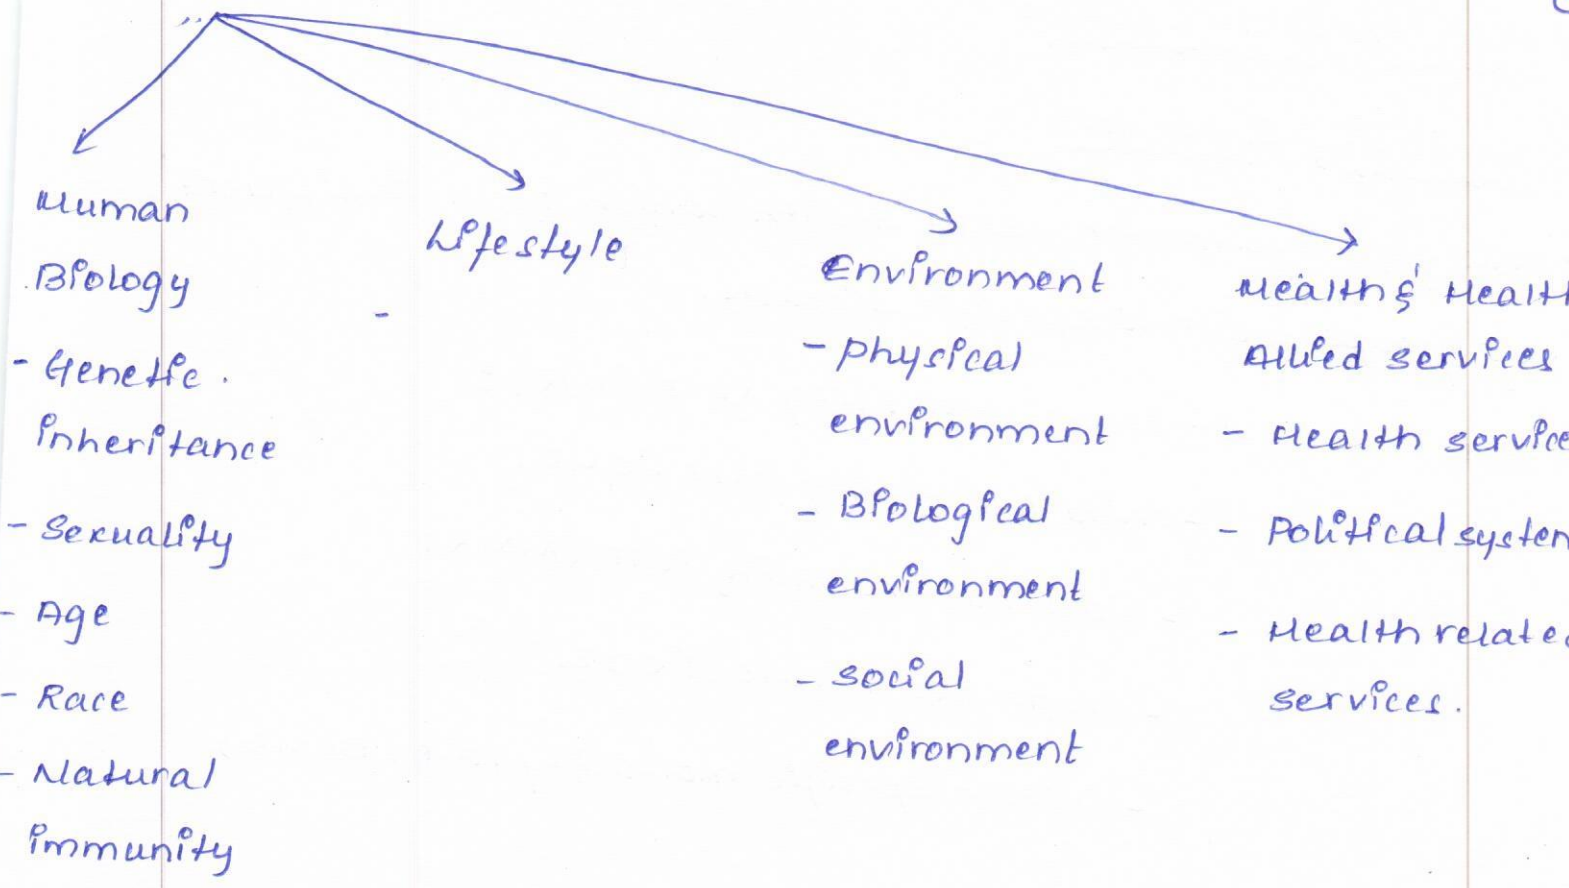 Human
Biology
- Genetic.
inheritance
- Sexuality
- Age
- Race
- Natural
immunity
Lifestyle
-
Environment
- physical
environment
- Biological
environment
- social
environment
Health & Health
Allied services
- Health service
- Political system
- Health related
services.